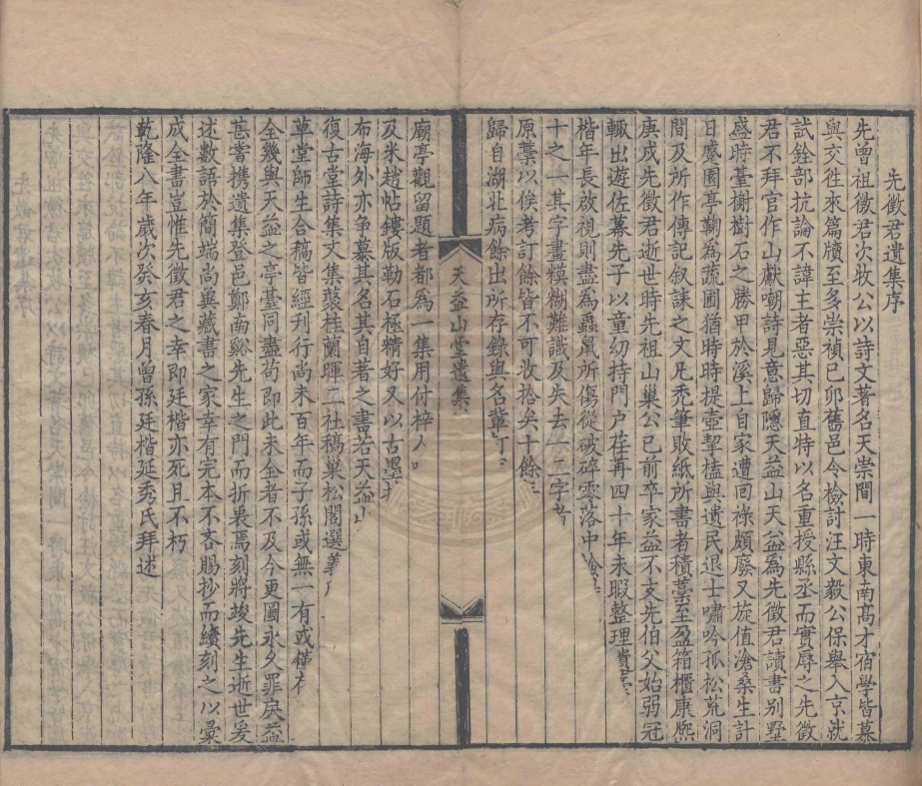 先徵君遺集序
先曾祖徵君次牧公以詩文著名天崇間一時東南髙才宿學皆慕
與交徃來篇牘至多崇禎己卯舊邑令檢討汪文毅公保舉入京就
試銓部抗論不諱主者惡其切直特以名重授縣丞而實辱之先徵
君不拜官作山獻嘲詩見意歸隱天益山天益爲先徵君讀書别墅
盛時臺榭樹石之勝甲於溪上自家遭回祿頗廢又旋值滄桑生計
日蹙園亭鞠為蔬圃猶時時提壺挈榼與遺民退士嘯吟孤松荒洞
間及所作傳記叙誄之文凡禿筆敗紙所書者積藁至盈箱櫃康熙
庚戌先徵君逝世時先祖山巢公已前卒家益不支先伯父始弱冠
輒出遊佐幕先子以童幼持門户荏苒四十年未暇整理遺藁
楷年長啟視則盡為蟲鼠所傷從破碎零落中
十之一其字畫糢糊難識及失去一二字者
原藁以俟考訂餘皆不可收拾矣十餘
歸自湖北病餘出所存錄與名輩訂
天益山堂遺集
廟亭觀留題者都為一集用付梓人
及米趙帖鏤版勒石極精好又以古墨
布海外亦争慕其名其自著之書若天益山
復古堂詩集文集蘂桂蘭暉二社稿巢松閣選義
草堂師生合稿皆經刊行尚未百年而子孫或無一有或僅存
全幾與天益之亭臺同盡茍即此未全者不及今更圖永久罪戾益
甚嘗携遺集登邑鄭南谿先生之門而折衷焉刻將竣先生逝世爰
述數語於簡端尚冀藏書之家幸有完本不吝賜抄而續刻之以彙
成全書豈惟先徵君之幸即廷楷亦死且不朽
乾隆八年歲次癸亥春月曾孫廷楷延秀氏拜述